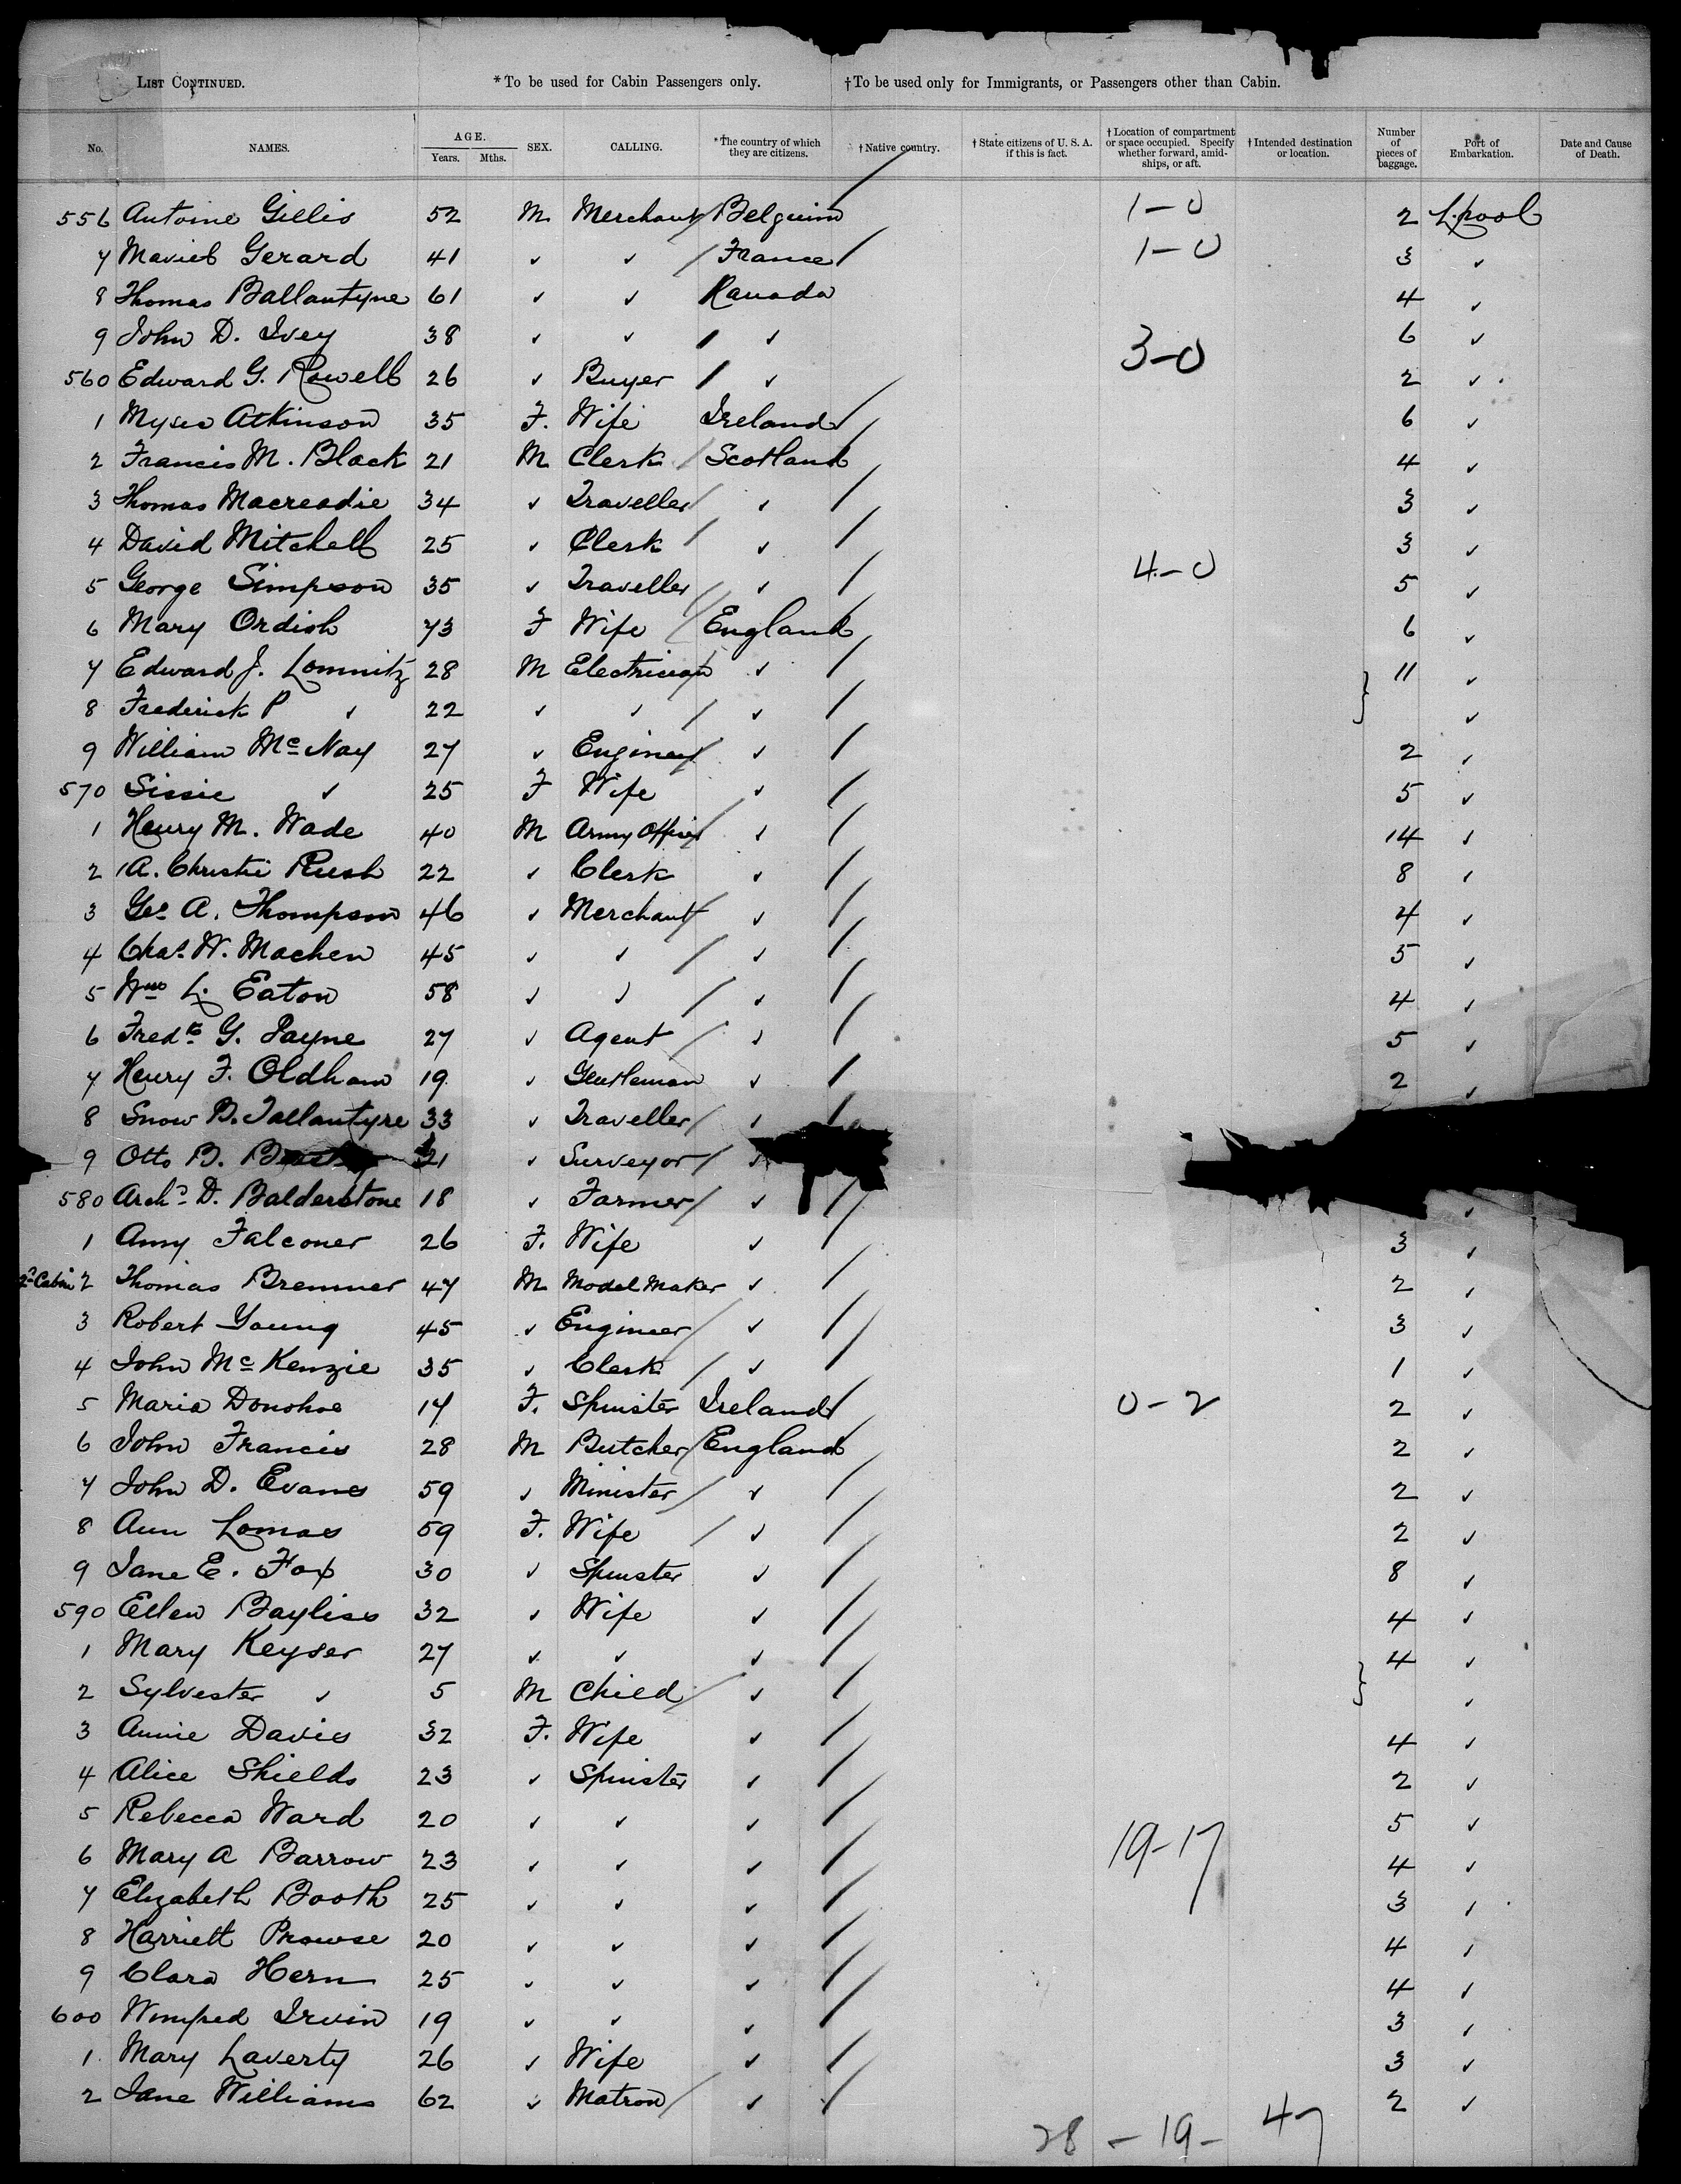 LIST CONTINUED. *To be used for Cabin Passengers only. †To be used only for Immigrants, or Passengers other than Cabin.
No. NAMES. AGE. Years. Mths. SEX. CALLING. *The country of which they are citizens. †Native country. †State citizens of U. S. A. if this is fact. †Location of compartment or space occupied. Specify whether forward, amid-ships, or aft. †Intended destination or location. Number of pieces of baggage. Port of Embarkation. Date and Cause of Death.
556 Antoine Gillis 52 M Merchant Belguim 1-0 2 L'pool
7 Gerard 41 ✓ ✓ France 1-0 3 ✓
8 Thomas Ballantyne 61 ✓ ✓ Kanada 4 ✓
9 John D. Ivey 38 ✓ ✓ ✓ 6 ✓
3-0
560 Edward G. Rowell 26 ✓ Buyer ✓ 2 ✓
1 Atkinson 35 F. Wife Ireland 6 ✓
2 Francis M. Black 21 M Clerk Scotland 4 ✓
3 Thomas Macreadie 34 ✓ Traveller ✓ 3 ✓
4 David Mitchell 25 ✓ Clerk ✓ 3 ✓
5 George Simpson 35 ✓ Traveller ✓ 4-0 5 ✓
6 Mary Ordish 73 F Wife England 6 ✓
7 Edward J. Lomnitz 28 M Electrician ✓ 11 ✓
8 Frederick P ✓ 22 ✓ ✓ ✓ ✓
9 William McNay 27 ✓ Engineer ✓ 2 ✓
570 Sissie ✓ 25 F Wife ✓ 5 ✓
1 Henry M. Wade 40 M Army Officer ✓ 14 ✓
2 A. Christie Rush 22 ✓ Clerk ✓ 8 ✓
3 Geo A. Thompson 46 ✓ Merchant ✓ 4 ✓
4 Chas. W. Machen 45 ✓ ✓ ✓ 5 ✓
5 Wm L. Eaton 58 ✓ ✓ ✓ 4 ✓
6 Fredk G. Payne 27 ✓ Agent ✓ 5 ✓
7 Henry F. Oldham 19 ✓ Gentleman ✓ 2 ✓
8 Snow B. Tallantyre 33 ✓ Traveller ✓
9 Otto B. 21 ✓ Surveyor ✓
580 Archd D. Balderstone 18 ✓ Farmer ✓ ✓
1 Amy Falconer 26 F. Wife ✓ 3 ✓
2d Cabin 2 Thomas Bremner 47 M Model Maker ✓ 2 ✓
3 Robert Young 45 ✓ Engineer ✓ 3 ✓
4 John McKenzie 35 ✓ Clerk ✓ 1 ✓
5 Maria Donohoe 17 F. Spinster Ireland 0-2 2 ✓
6 John Francis 28 M Butcher England 2 ✓
7 John D. Evans 59 ✓ Minister ✓ 2 ✓
8 Ann Lomas 59 F. Wife ✓ 2 ✓
9 Jane E. Fox 30 ✓ Spinster ✓ 8 ✓
590 Ellen Bayliss 32 ✓ Wife ✓ 4 ✓
1 Mary Keyser 27 ✓ ✓ ✓ 4 ✓
2 Sylvester ✓ 5 M Child ✓ ✓
3 Annie Davies 32 F. Wife ✓ 4 ✓
4 Alice Shields 23 ✓ Spinster ✓ 2 ✓
5 Rebecca Ward 20 ✓ ✓ ✓ 5 ✓
6 Mary A Barrow 23 ✓ ✓ ✓ 19-17 4 ✓
7 Elizabeth Booth 25 ✓ ✓ ✓ 3 ✓
8 Harriett Prowse 20 ✓ ✓ ✓ 4 ✓
9 Clara Hern 25 ✓ ✓ ✓ 4 ✓
600 Winifred Irvin 19 ✓ ✓ ✓ 3 ✓
1 Mary Laverty 26 ✓ Wife ✓ 3 ✓
2 Jane Williams 62 ✓ Matron ✓ 2 ✓
28 - 19 - 47